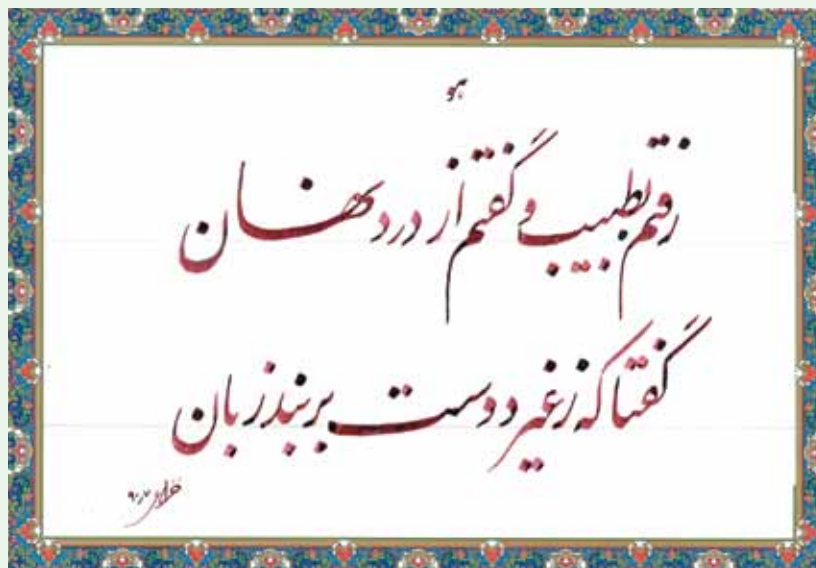 هو
رفتم بطبیب و گفتم از درد نهان
گفتا که ز غیر دوست بر بند زبان